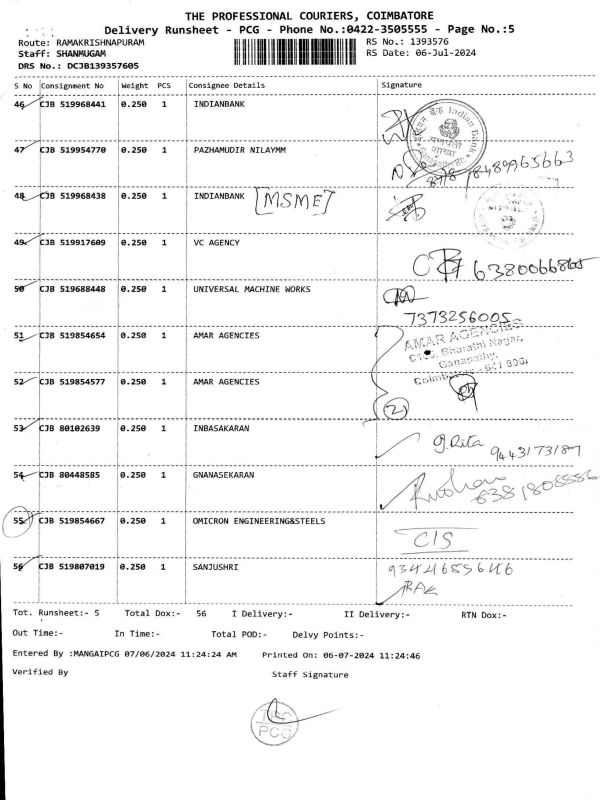 THE PROFESSIONAL COURIERS, COIMBATORE
Delivery Runsheet - PCG - Phone No.:0422-3505555 - Page No.:5
Route: RAMAKRISHNAPURAM
RS No.: 1393576
Staff: SHANMUGAM
RS Date: 06-Jul-2024
DRS No.: DCJB139357605
S No Consignment No Weight PCS Consignee Details Signature
46 CJB 519968441 0.250 1 INDIANBANK
Indian Bank
47 CJB 519954770 0.250 1 PAZHAMUDIR NILAYMM
8489965663
48 CJB 519968438 0.250 1 INDIANBANK [MSME]
49 CJB 519917609 0.250 1 VC AGENCY
6380066865
50 CJB 519688448 0.250 1 UNIVERSAL MACHINE WORKS
7373256005
51 CJB 519854654 0.250 1 AMAR AGENCIES
AMAR AGENCIES
Bharathi Nagar,
Ganapathy,
52 CJB 519854577 0.250 1 AMAR AGENCIES
2
53 CJB 80102639 0.250 1 INBASAKARAN
g.Rita 9443173187
54 CJB 80448585 0.250 1 GNANASEKARAN
55 CJB 519854667 0.250 1 OMICRON ENGINEERING&STEELS
C/S
56 CJB 519807019 0.250 1 SANJUSHRI
Tot. Runsheet:- 5 Total Dox:- 56 I Delivery:- II Delivery:- RTN Dox:-
Out Time:- In Time:- Total POD:- Delvy Points:-
Entered By :MANGAIPCG 07/06/2024 11:24:24 AM Printed On: 06-07-2024 11:24:46
Verified By Staff Signature
PCG